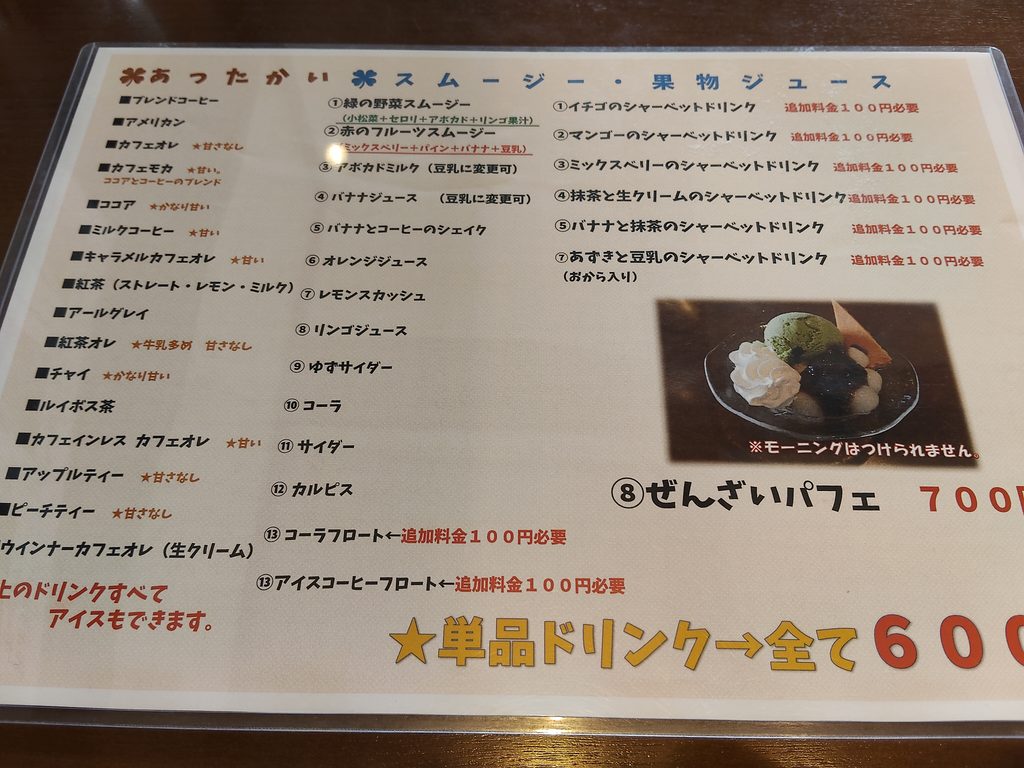 あったかい
■ブレンドコーヒー
■アメリカン
■カフェオレ ★甘さなし
■カフェモカ ★甘い。
ココアとコーヒーのブレンド
■ココア ★かなり甘い
■ミルクコーヒー ★甘い
■キャラメルカフェオレ ★甘い
■紅茶（ストレート・レモン・ミルク）
■アールグレイ
■紅茶オレ ★牛乳多め 甘さなし
■チャイ ★かなり甘い
■ルイボス茶
■カフェインレス カフェオレ ★甘い
■アップルティー ★甘さなし
■ピーチティー ★甘さなし
ウインナーカフェオレ（生クリーム）
上のドリンクすべて
アイスもできます。
スムージー・果物ジュース
①緑の野菜スムージー
（小松菜＋セロリ＋アボカド＋リンゴ果汁）
②赤のフルーツスムージー
ミックスベリー＋パイン＋バナナ＋豆乳）
③アボカドミルク（豆乳に変更可）
④バナナジュース （豆乳に変更可）
⑤バナナとコーヒーのシェイク
⑥オレンジジュース
⑦レモンスカッシュ
⑧リンゴジュース
⑨ゆずサイダー
⑩コーラ
⑪サイダー
⑫カルピス
⑬コーラフロート←追加料金１００円必要
⑬アイスコーヒーフロート←追加料金１００円必要
①イチゴのシャーベットドリンク 追加料金１００円必要
②マンゴーのシャーベットドリンク 追加料金１００円必要
③ミックスベリーのシャーベットドリンク 追加料金１００円必要
④抹茶と生クリームのシャーベットドリンク 追加料金１００円必要
⑤バナナと抹茶のシャーベットドリンク 追加料金１００円必要
⑦あずきと豆乳のシャーベットドリンク 追加料金１００円必要
（おから入り）
※モーニングはつけられません。
⑧ぜんざいパフェ ７００円
★単品ドリンク→全て６００